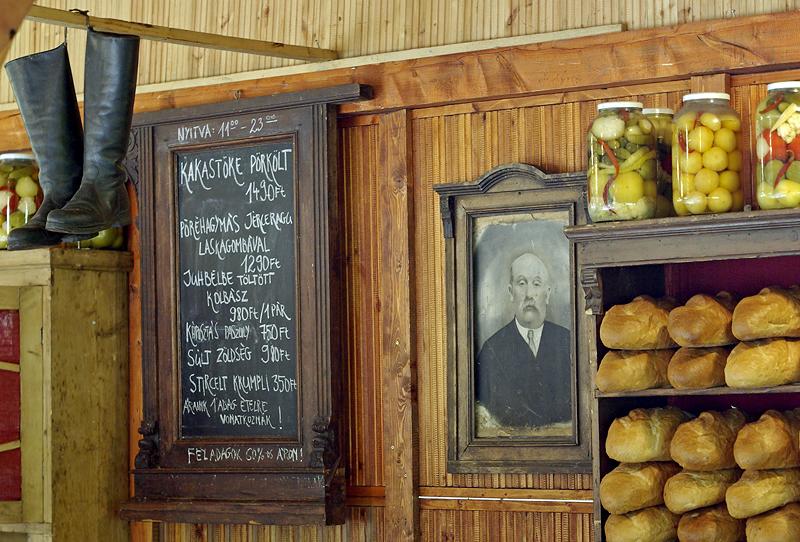 NYITVA: 11⁰⁰ - 23⁰⁰
KAKASTÖKE PÖRKÖLT
1490 Ft
PÓRÉHAGYMÁS JÉRCERAGU
LASKAGOMBÁVAL
1290 Ft
JUHBÉLBE TÖLTÖTT
KOLBÁSZ
980 Ft/1 PÁR
KÁPOSZTÁS PASZULY 750 Ft
SÜLT ZÖLDSÉG 980 Ft
STIRCELT KRUMPLI 350 Ft
ÁRAINK 1 ADAG ÉTELRE
VONATKOZNAK!
FÉLADAGOK 60%-OS ÁRON!